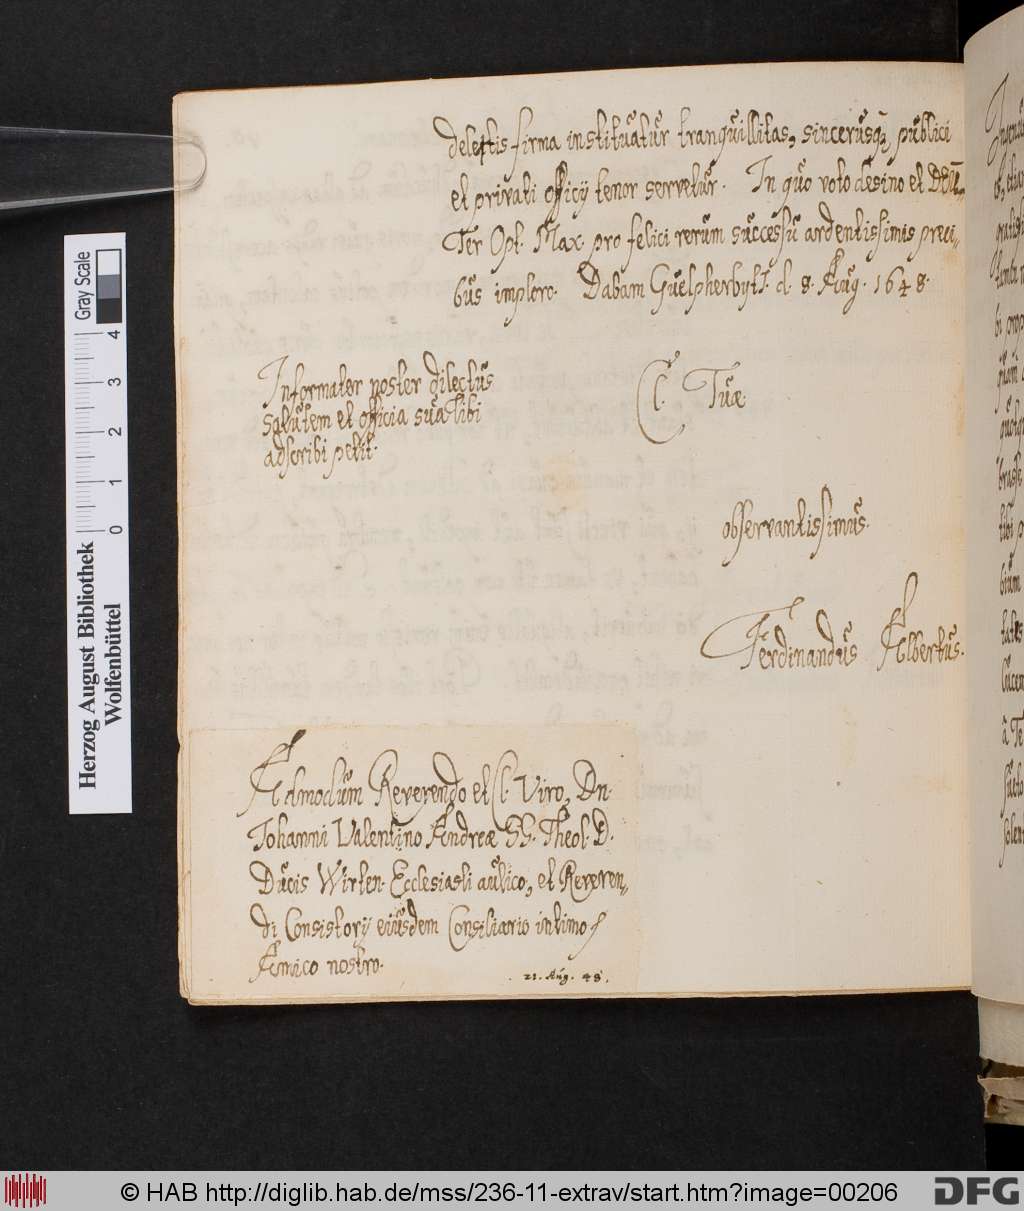 deletis firma instituatur tranquillitas, sincerusq̃ publici
et privati officij tenor servetur. In quo voto desino et DEŪ
Ter Opt. Max. pro felici rerum successu ardentissimis preci-
bus imploro. Dabam Guelpherbyti. d. 8. Aug. 1648.
Informator noster dilectus
salutem et officia sua Tibi
adscribi petit.
Cl. Tuæ
observantissimus.
Ferdinandus Albertus.
Admodum Reverendo et Cl. Viro, Dn.
Johanni Valentino Andreæ SS. Theol. D.
Ducis Wirten. Ecclesiasti aulico, et Reveren„
di Consistorij eiusdem Consiliario intimo
Amico nostro.
21. Aug. 48.
Herzog August Bibliothek
Wolfenbüttel
Gray Scale
0 1 2 3 4
© HAB http://diglib.hab.de/mss/236-11-extrav/start.htm?image=00206
DFG